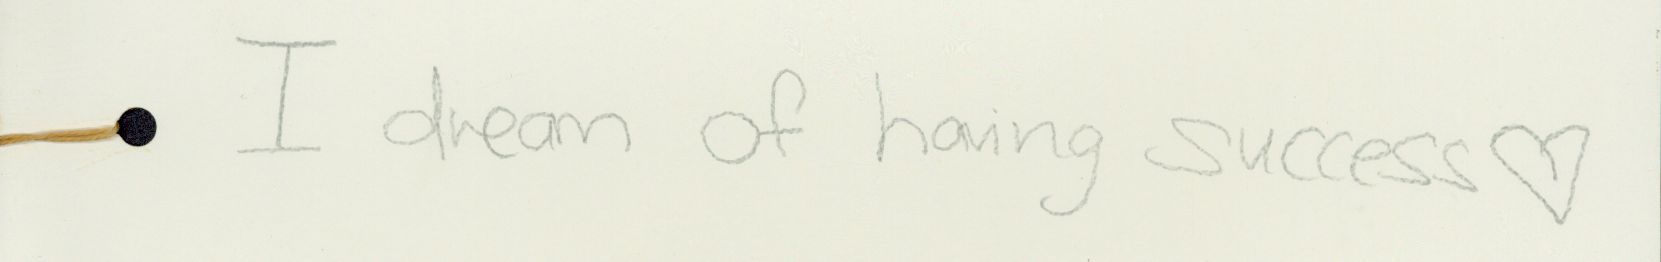 I dream of having success♡